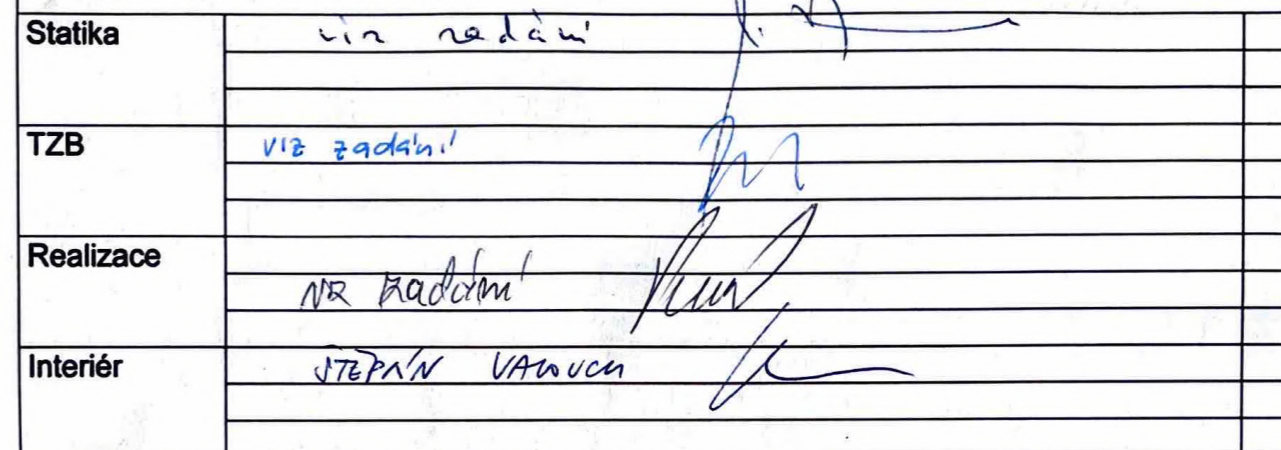 Statika viz zadání
TZB viz zadání
Realizace viz zadání
Interiér ŠTĚPÁN VALOUCH